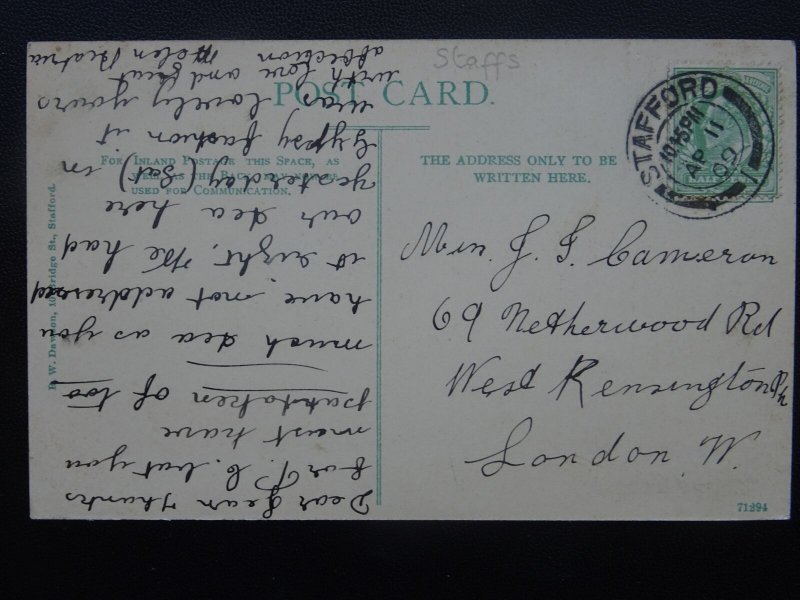 Staffs
POST CARD.
FOR INLAND POSTAGE THIS SPACE, AS
WELL AS THE BACK, MAY NOW BE
USED FOR COMMUNICATION.
THE ADDRESS ONLY TO BE
WRITTEN HERE.
STAFFORD
10.15PM
AP 11
09
1
Miss J. F. Cameron
69 Netherwood Rd
West Kensington Pk
London. W.
Dear Jean Thanks
for P. C. but you
must have
partaken of too
much tea as you
have not addressed
it right. We had
our tea here
yesterday (Sat) in
Gypsy fashion it
was lovely yours
with love and great
affection Helen Beatrice
W. Dawson, Bridge St., Stafford.
71294